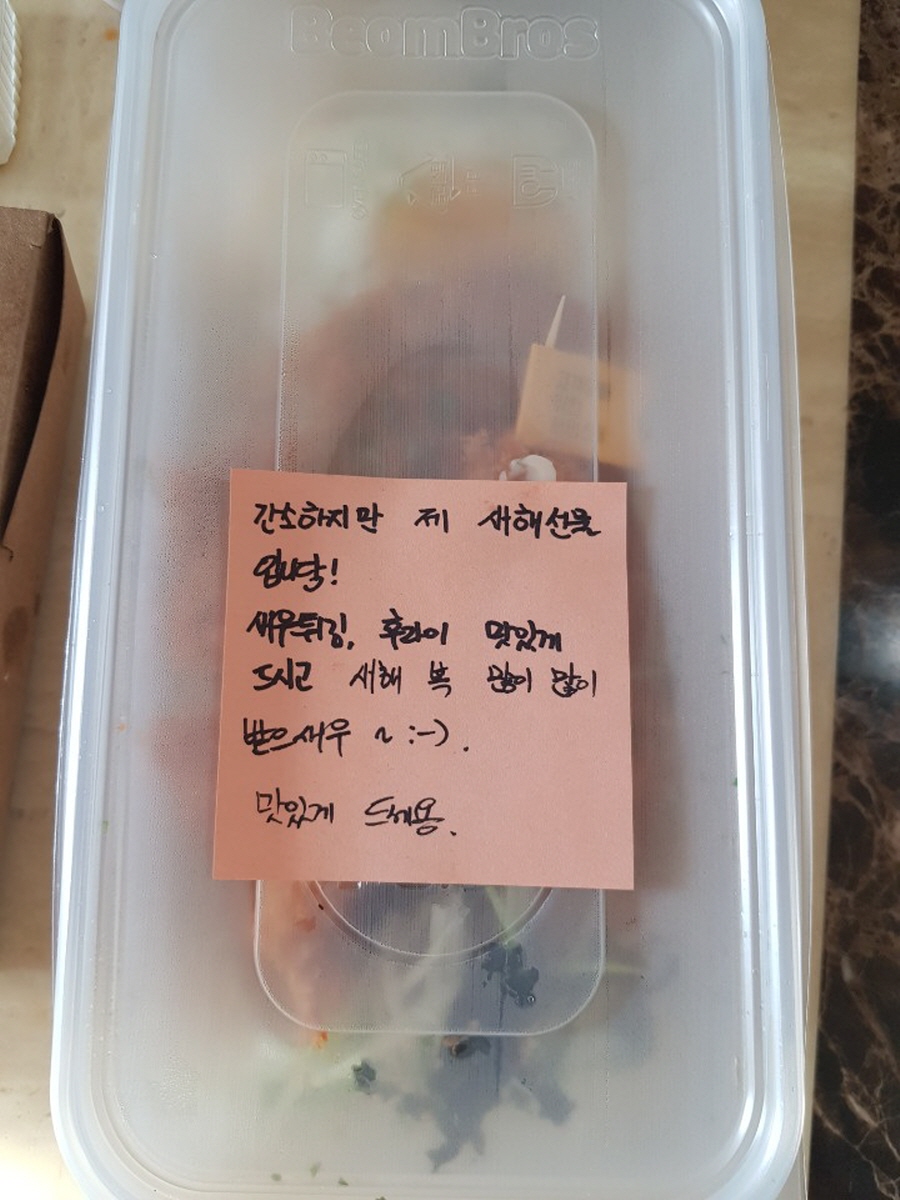 BeomBros
간소하지만 제 새해선물
입니닷!
새우튀김, 후라이 맛있게
드시고 새해 복 많이 많이
받으새우 ~ :-).
맛있게 드세용.